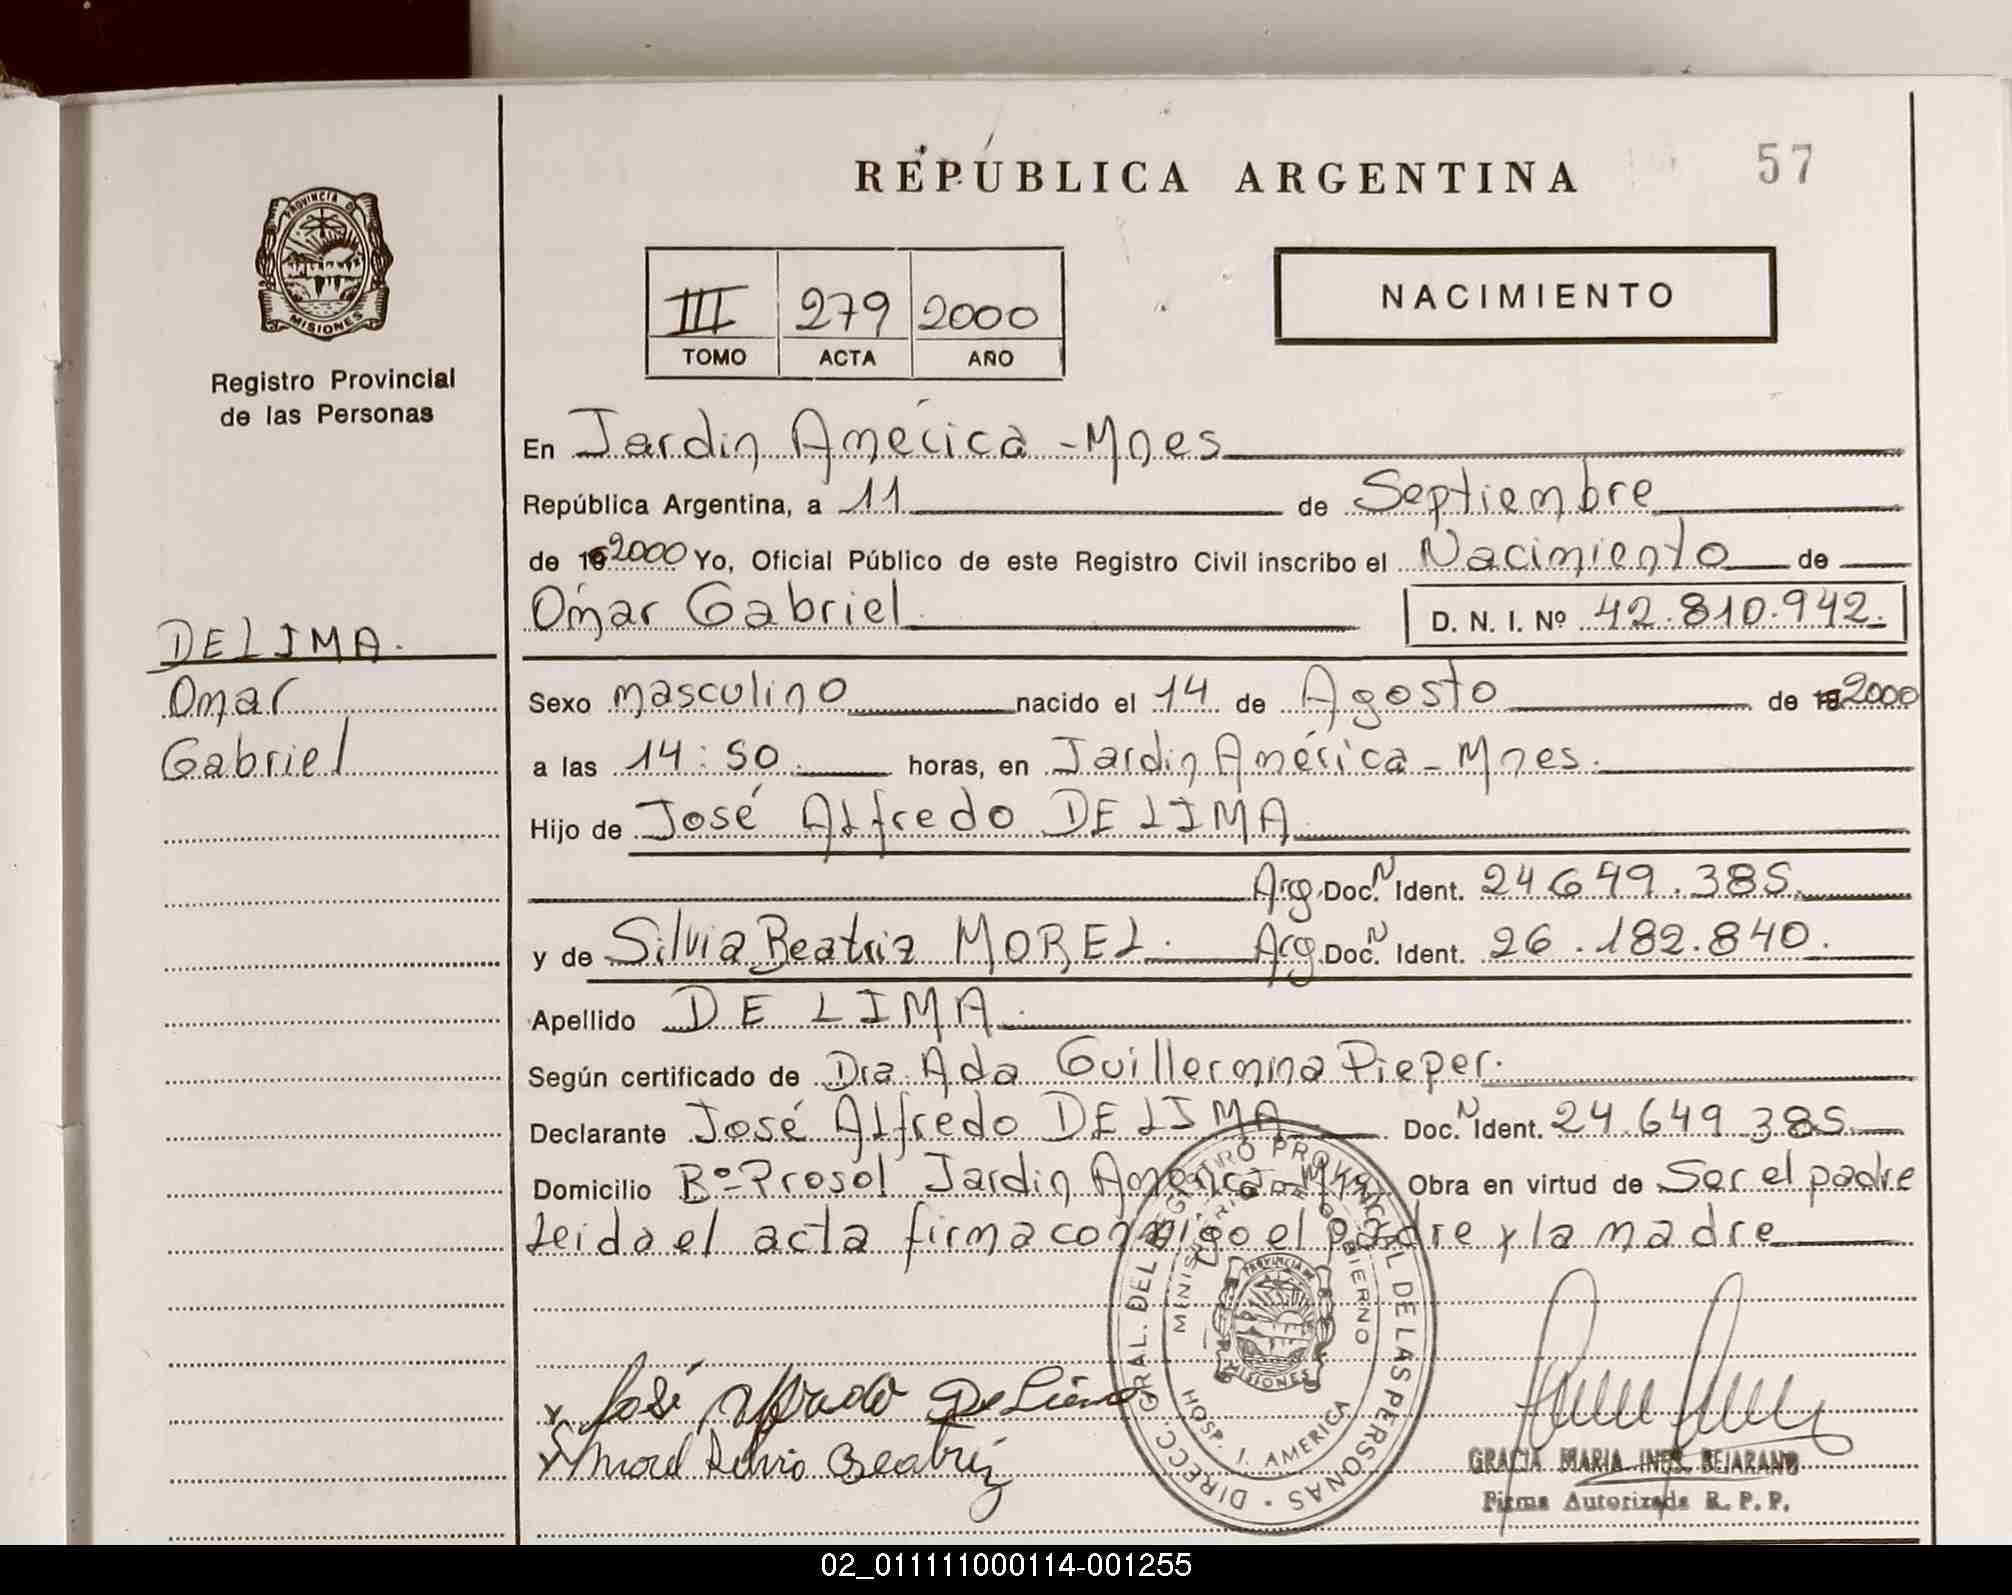 REPÚBLICA ARGENTINA
57
PROVINCIA DE
MISIONES
Registro Provincial
de las Personas
III 279 2000
TOMO ACTA AÑO
NACIMIENTO
En Jardin América - Mnes
República Argentina, a 11 de Septiembre
de 19 2000 Yo, Oficial Público de este Registro Civil inscribo el Nacimiento de
Omar Gabriel D. N. I. Nº 42.810.942.
DE LIMA.
Omar
Gabriel
Sexo masculino nacido el 14 de Agosto de 19 2000
a las 14:50 horas, en Jardin América - Mnes.
Hijo de José Alfredo DE LIMA
Arg. Doc. N Ident. 24.649.385.
y de Silvia Beatriz MOREL. Arg. Doc. N Ident. 26.182.840.
Apellido DE LIMA.
Según certificado de Dra Ada Guillermina Pieper.
Declarante José Alfredo DE LIMA Doc. N Ident. 24.649.385
Domicilio Bº Prosol Jardin América - Mnes Obra en virtud de Ser el padre
Leida el acta firma conmigo el padre y la madre
DIRECC. GRAL. DEL REGISTRO PROVINCIAL DE LAS PERSONAS
MINISTERIO DE GOBIERNO
PROVINCIA DE
MISIONES
HOSP. J. AMERICA
José Alfredo De Lima
Morel Silvia Beatriz
GRACIA MARIA INES BEJARANO
Firma Autorizada R. P. P.
02_011111000114-001255